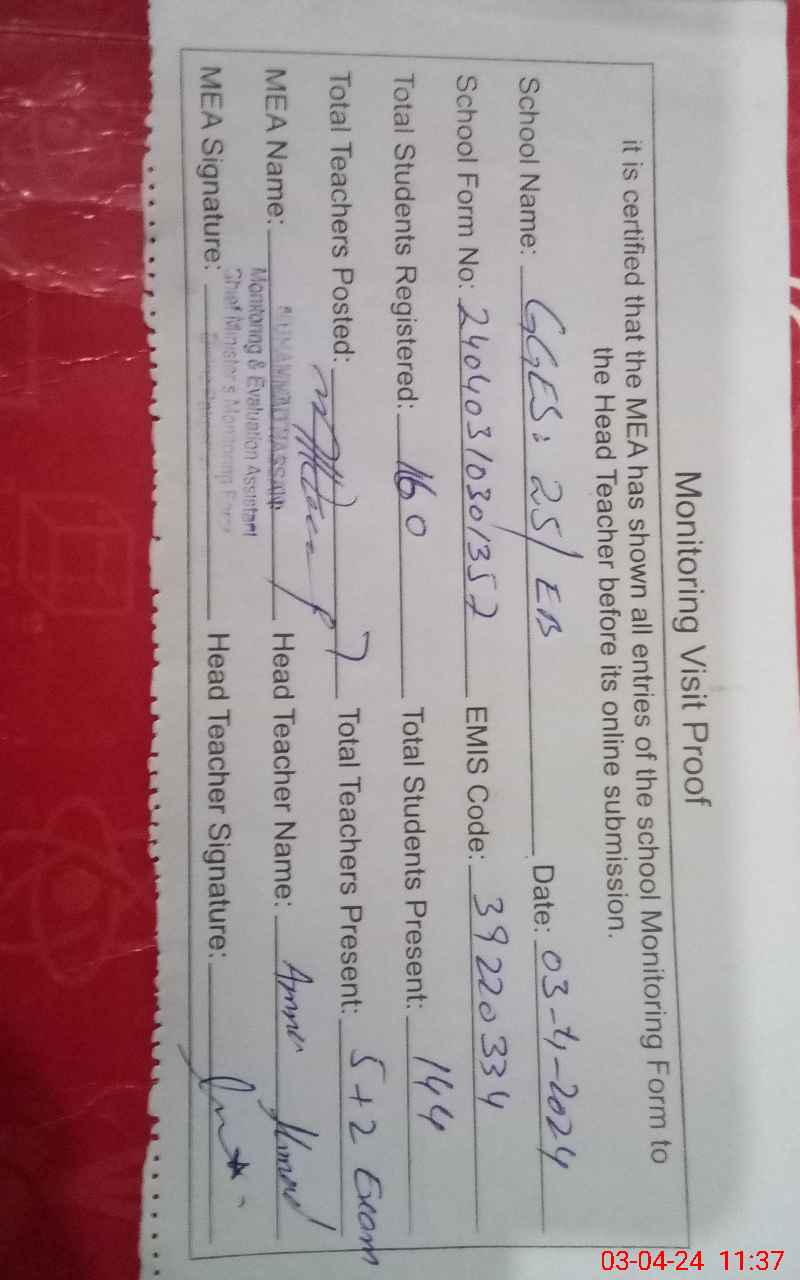 Monitoring Visit Proof
it is certified that the MEA has shown all entries of the school Monitoring Form to
the Head Teacher before its online submission.
School Name: GGES: 25/EB Date: 03-4-2024
School Form No: 24040310301352 EMIS Code: 39220334
Total Students Registered: 160 Total Students Present: 144
Total Teachers Posted: 7 Total Teachers Present: 5+2 Exam
MEA Name: Head Teacher Name: Ahmad
Monitoring & Evaluation Assistant
Chief Minister's Monitoring Force
MEA Signature: Head Teacher Signature:
03-04-24 11:37